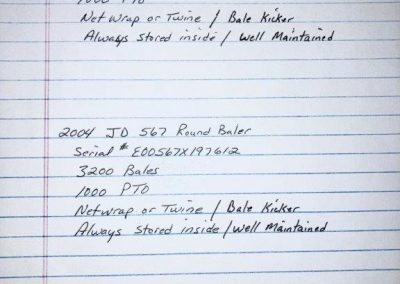 1000 PTO
Netwrap or Twine / Bale Kicker
Always stored inside / Well Maintained
2004 JD 567 Round Baler
Serial # E00567X197612
3200 Bales
1000 PTO
Netwrap or Twine / Bale Kicker
Always stored inside / Well Maintained